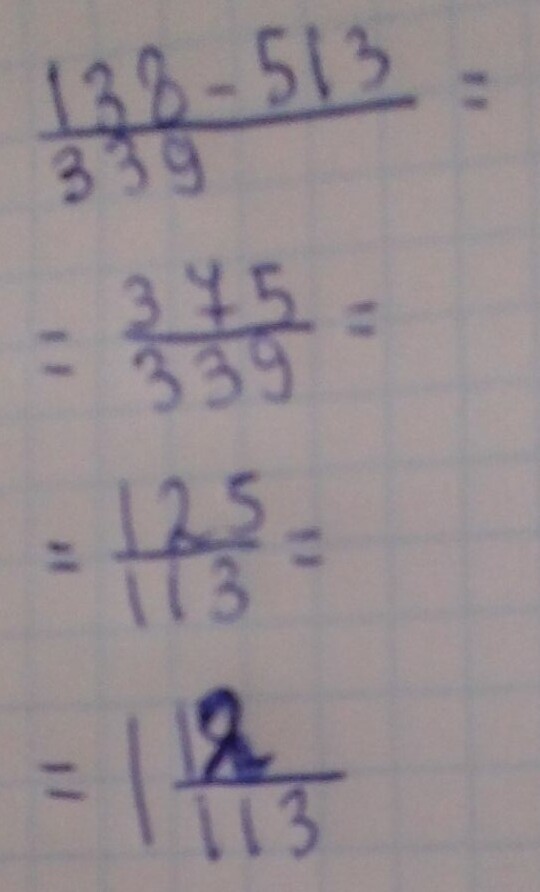 138-513 =
339
= 375 =
339
= 125 =
113
= 1 12
113